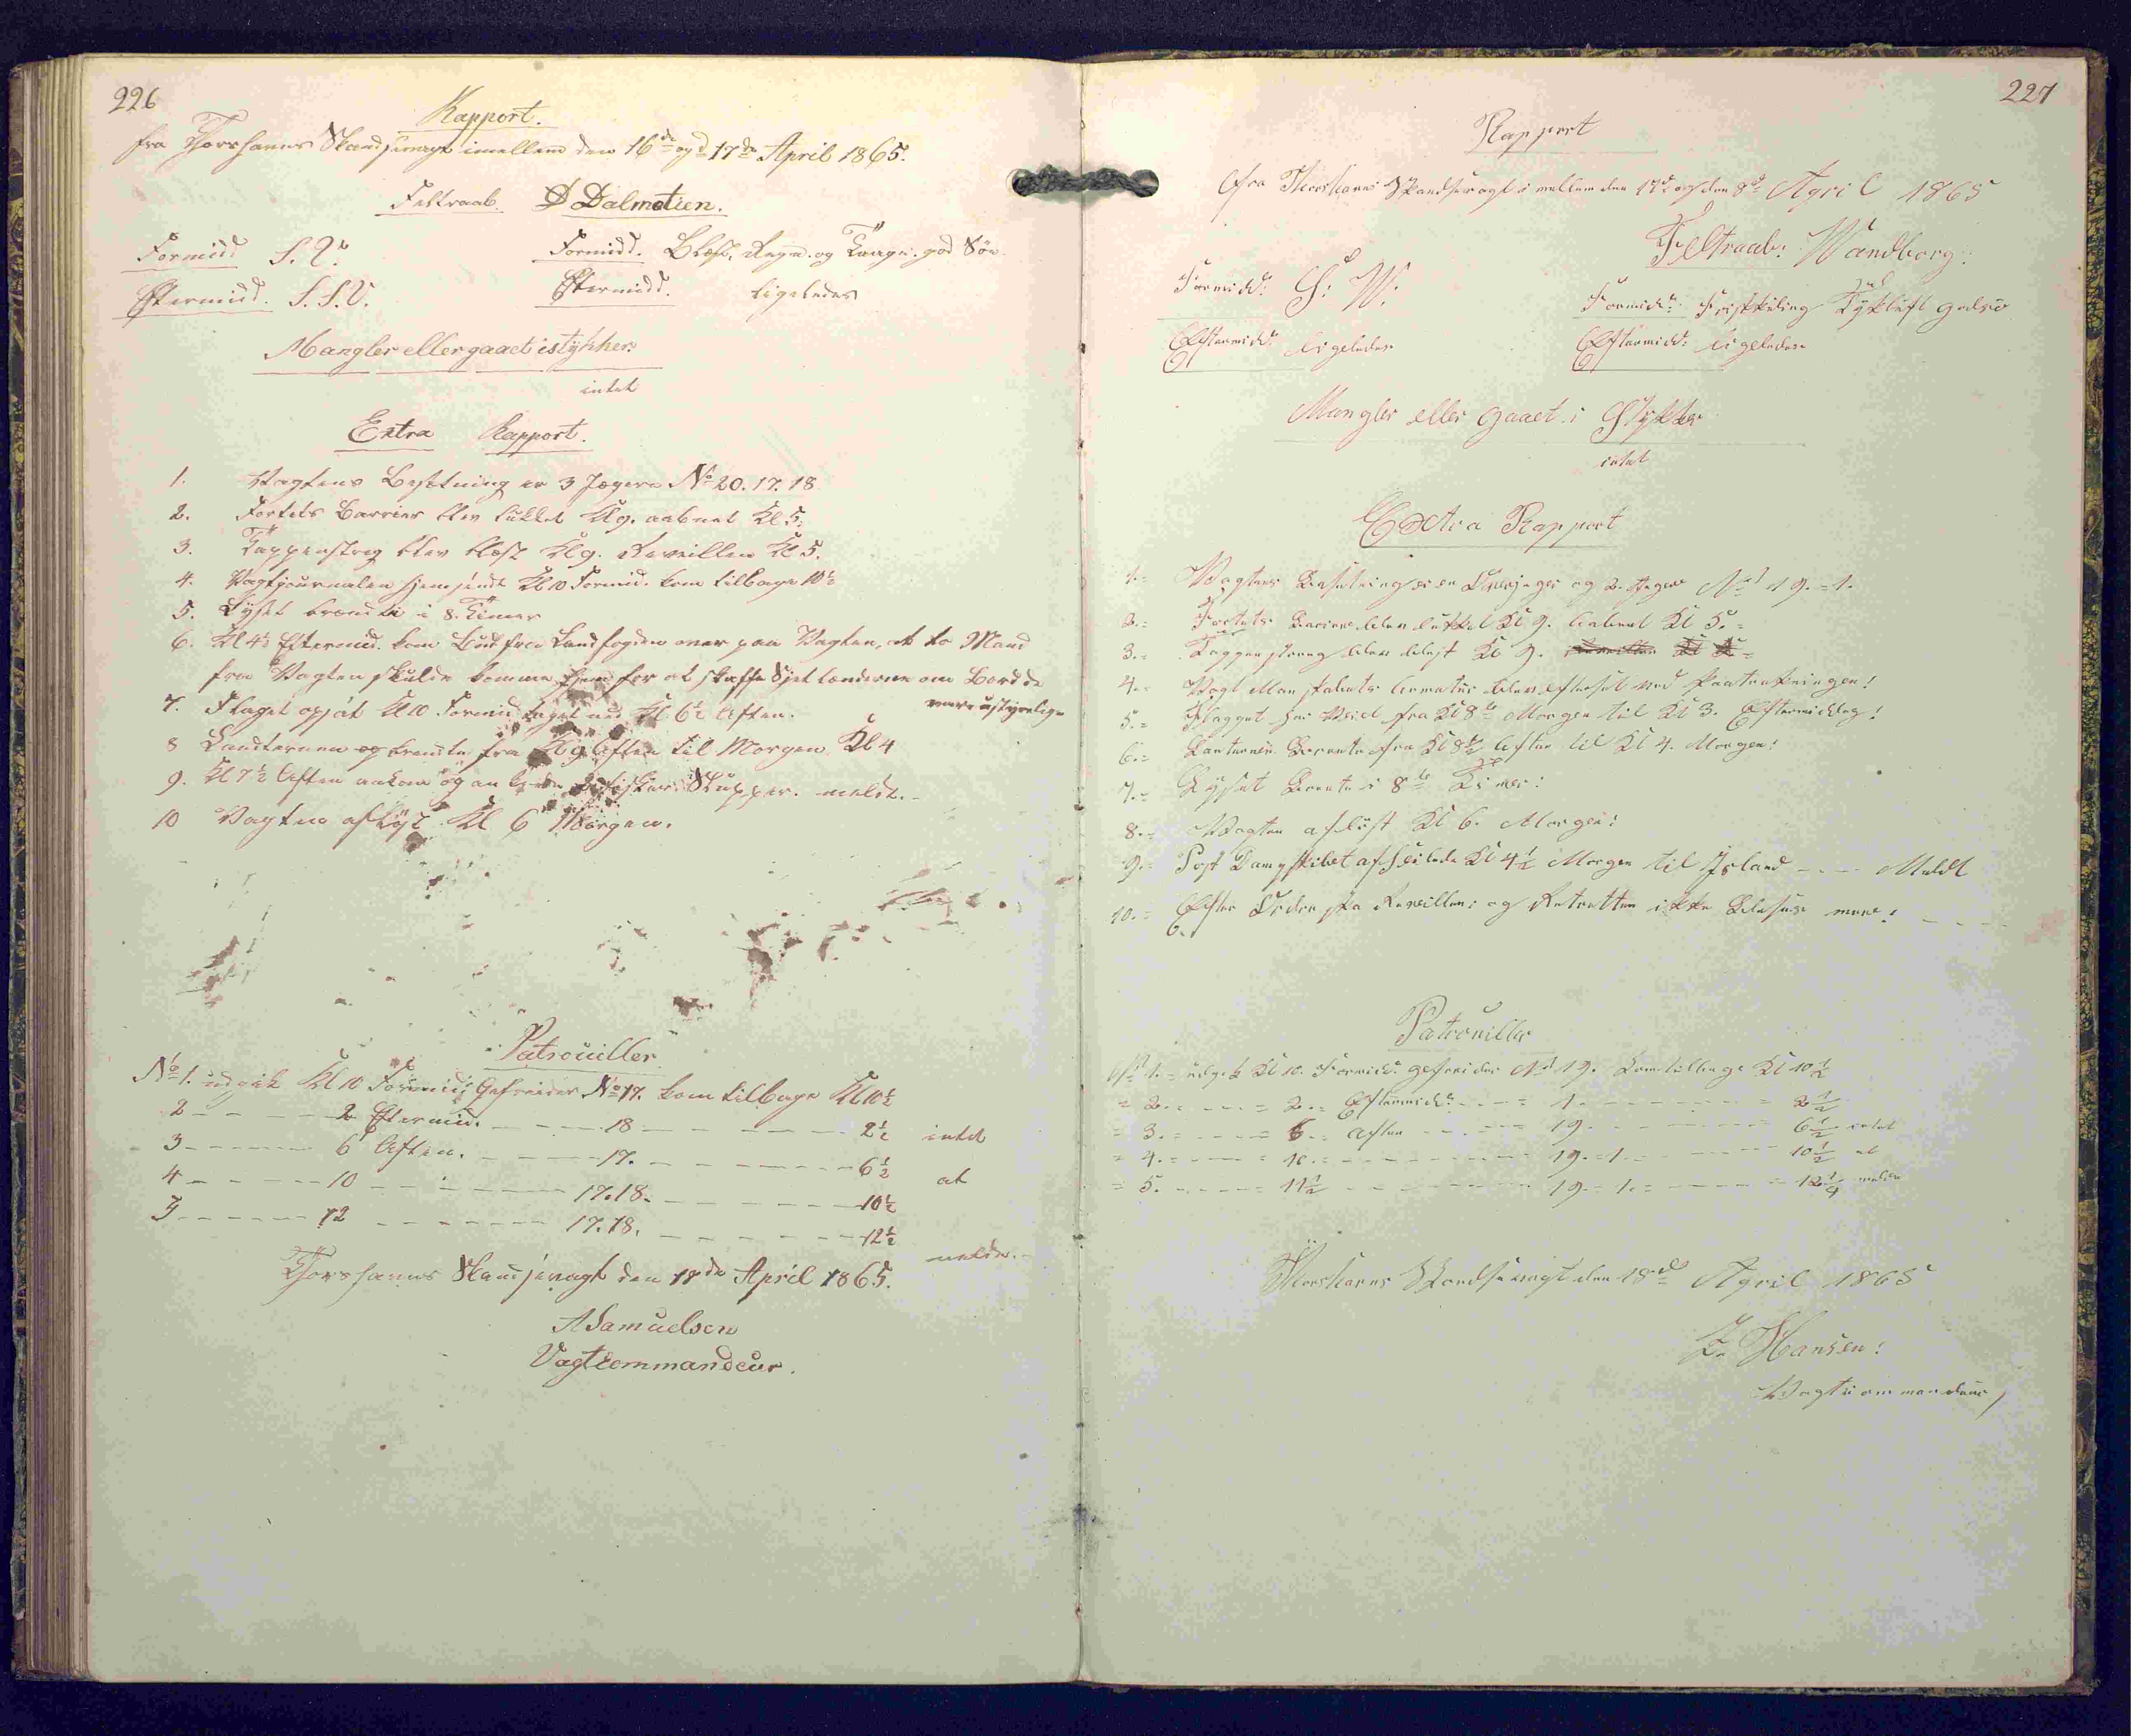 226
Rapport.
fra Thorshavns Skandsevagt imellem den 16de og 17de April 1865.
Feltraab. Dalmatien.
Formidd S. V. Formidd. Blæst, Regn. og Taage. god Søe
Eftermidd. S. S. V. Eftermidd. ligeledes
Mangler eller gaaet istykker.
intet
Extra Rapport.
1. Vagtens Besetning er 3 Jægere No 20. 17. 18.
2. Fortets Barrier blev lukket Kl 9. aabnet Kl 5.
3. Tappenstreg blev blæst Kl 9. Revillen Kl 5.
4. Vagtjournalen hjemsendt Kl 10 Formid. kom tilbage 10½
5. Lyset brændte i 8. Timer
6. Kl 4½ Eftermid. kom Bud fra Landfogden over paa Vagten, at to Mand
fra Vagten skulde komme hjem for at skaffe Sjetlænderne om Bord de
vare ustyrelige
7. Flaget opsat Kl 10 Formid taget ned Kl 6½ Aften.
8 Landternen og brendte fra Kl 9 Aften til Morgen Kl 4
9. Kl 7½ Aften ankom og an Fisker Slupper. meldt.
10 Vagten afløst Kl 6 Morgen.
Patrouiller
No 1. udgik Kl 10 Formid. Gefreider No 17. kom tilbage Kl 10½
2 - - - - 2 Eftermid. - - - 18 - - - - 2½ intet
3 - - - - 6 Aften. - - - 17. - - - - 6½
4 - - - - 10 - - - - 17. 18. - - - - 10½ at
5 - - - - 12 - - - - 17. 18. - - - - 12½
melde.
Thorshavns Skandsevagt den 17de April 1865.
A Samuelsen
Vagtcommandeur.
227
Rapport
fra Thorshavns Skandsevagt i mellem den 17d og den 8d April 1865
Feltraab: Wandborg:
Formidd: S: W: Formidd: Friskkuling Tykluft godsø
Eftermidd: ligeledes Eftermidd: ligeledes
Mangler eller gaaet i Stykker
intet
Extra Rapport
1.= Vagtens Besetning er en Overjæger og 2. Jægere No 19. = 1.
2.= Fortets Barriere blev lukket Kl 9. aabnet Kl 5.=
3.= Tappenstreg blev blæst Kl 9.
4.= Vagt Mandskabets Armatur blev efterset ved Paatredningen!
5.= Flagget har Veiel fra Kl 8 Morgen til Kl 3. Eftermiddag!
6.= Lanternen Brændte fra Kl 8½ Aften til Kl 4. Morgen!
7.= Lyset Brændte i 8 Timer!
8.= Vagten afløst Kl 6. Morgen!
9.= Post Dampskibet afseilede Kl 4½ Morgen til Island - - - Meldt
10.= Efter Order ska Revillen og Retretten ikke Blæses mere!
Patrouiller
No 1.= udgik Kl 10. Formidd: gefreider No 19. kom tilbage Kl 10½
= 2. - - - = 2.= Eftermidd: - - - 1. - - - - = 2½
= 3.= - - - = 6.= Aften - - - 19. - - - - 6½ intet
= 4.= - - - = 10.= - - - - 19.=1. - - - - 10½ at
= 5. - - - = 11½ - - - - 19.=1.= - - - = 12¼ melde
Thorshavns Skandsevagt den 18de April 1865
Z. Hansen!
Vagtcommandeur